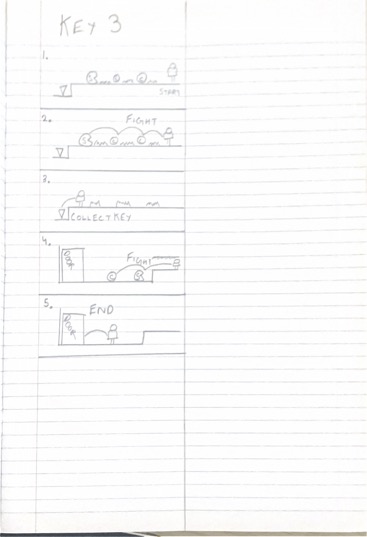 KEY 3
1.
START
2.
FIGHT
3.
COLLECT KEY
4.
DOOR
FIGHT
5.
END
DOOR